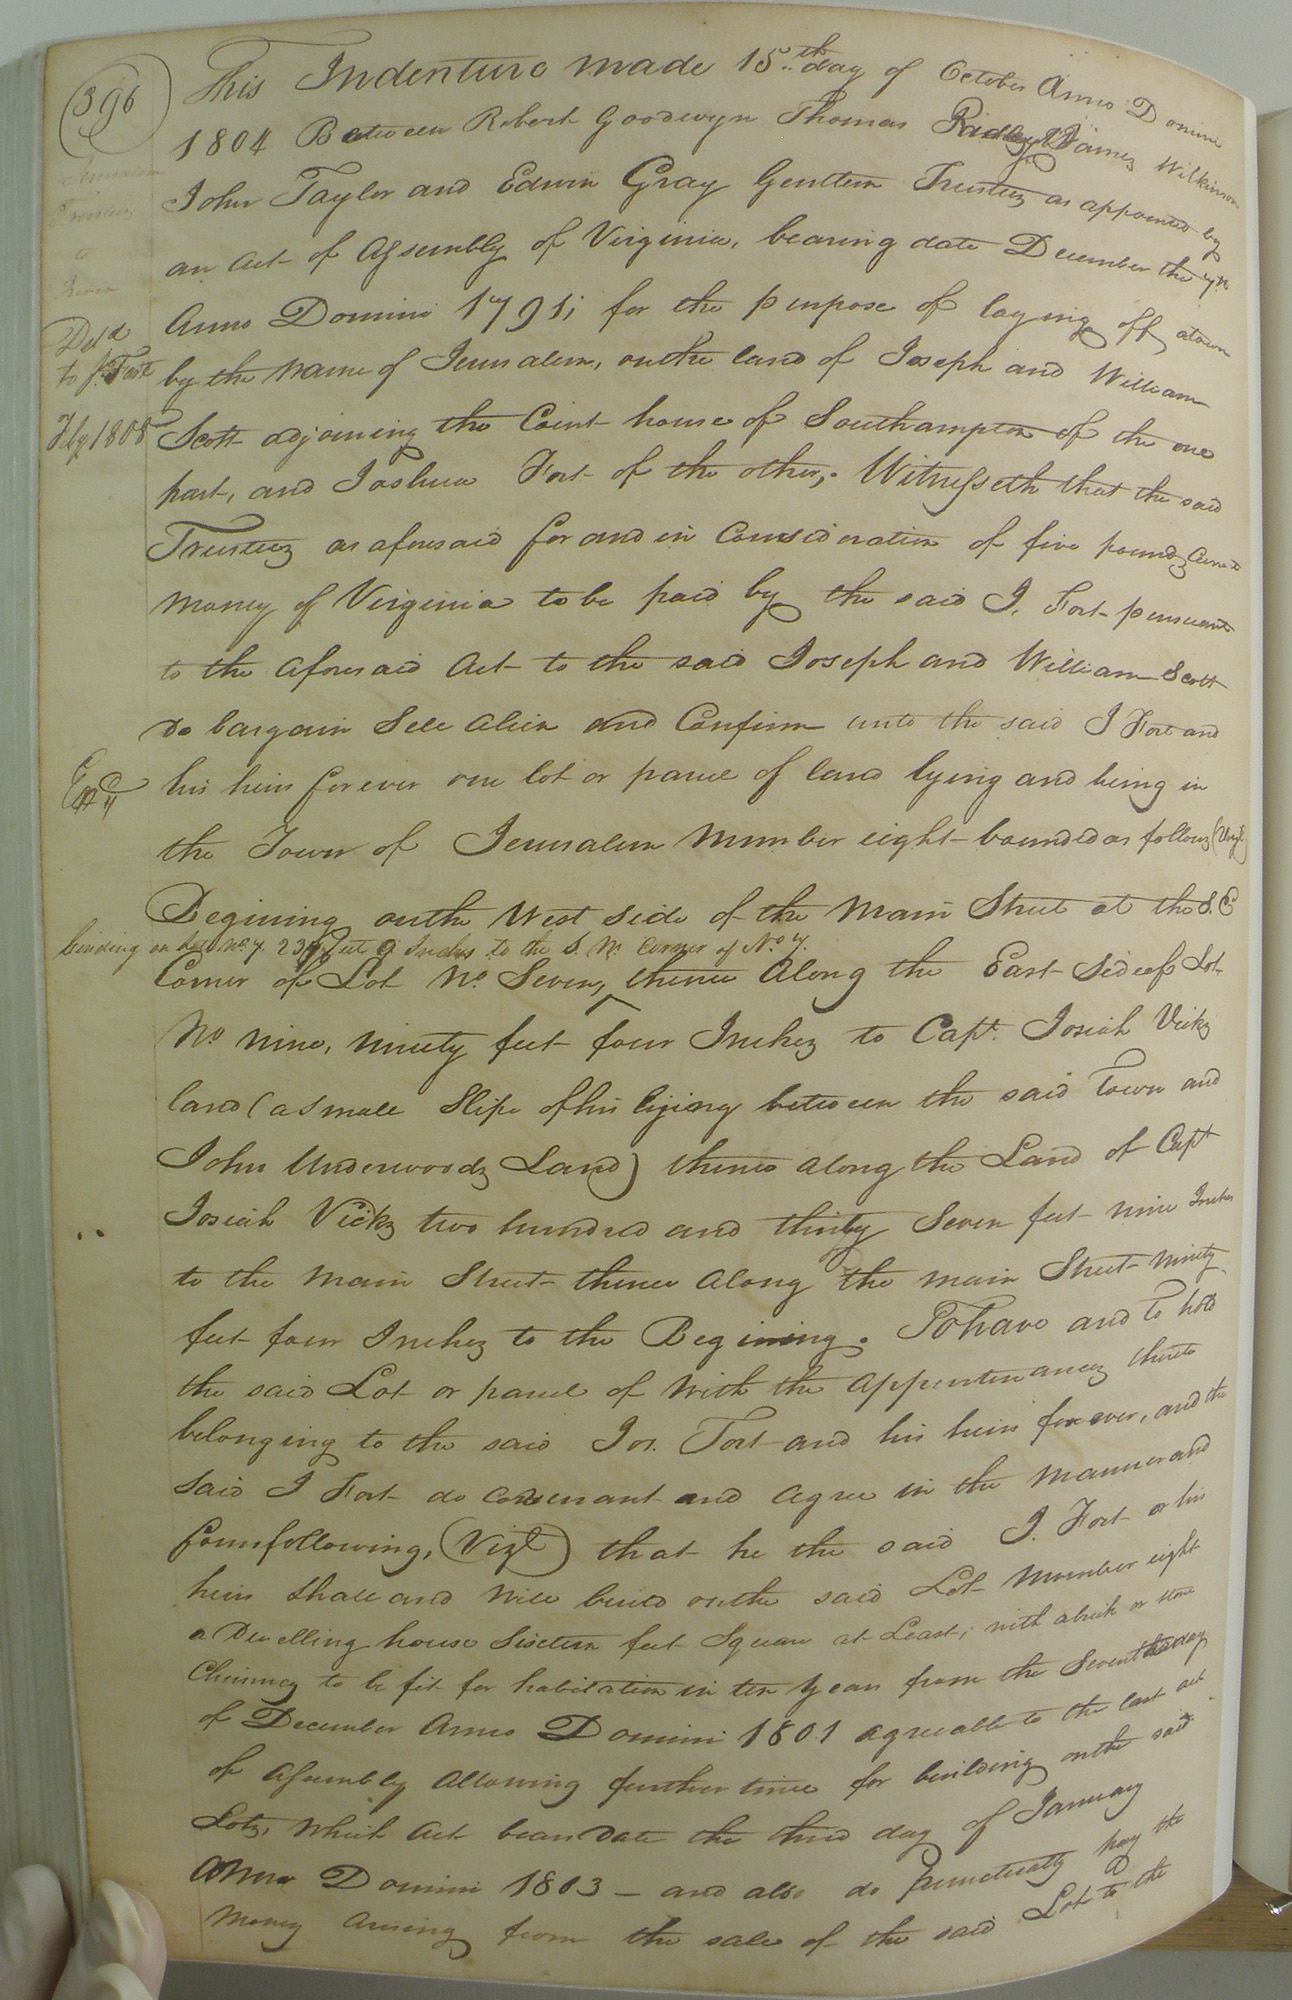 396
Jerusalem
Trustees
to
Deld
to J. Fort
Feby 1808
This Indenture made 15th day of October Anno Domini
1804 Between Robert Goodwyn Thomas Ridley James Wilkinson
John Taylor and Edwin Gray Gentlem Trustees as appointed by
an Act of Assembly of Virginia, bearing date December the 7th
Anno Domini 1791; for the purpose of laying off a town
by the Name of Jerusalem, on the land of Joseph and William
Scott adjoining the Court house of Southampton of the one
part, and Joshua Fort of the other,. Witnesseth that the said
Trustees as aforesaid for and in Consideration of five pounds Curent
Money of Virginia to be paid by the said J. Fort pursuant
to the aforesaid Act to the said Joseph and William Scott
do bargain Sell alien and Confirm unto the said J Fort and
Exd
his heirs forever one lot or parcel of land lying and being in
the Town of Jerusalem Number eight bounded as follows (Vizt)
Begining on the West side of the Main Street at the S. E
binding on Lot No. 7. 237 feet 9 Inches to the S. W. Corner of No. 7.
Corner of Lot No. Seven, ^ thence Along the East Side of Lot
No nine, Ninety feet four Inches to Capt. Josiah Vicks
land (a small Slipe of his lying between the said Town and
John Underwoods Land) thence along the Land of Capt
Josiah Vicks two hundred and thirty Seven feet nine Inches
to the Main Street thence Along the main Street Ninety
feet four Inches to the Begining. To have and to hold
the said Lot or parcel of With the appurtenances thereto
belonging to the said Jos. Fort and his heirs forever, and the
Said J Fort do covenant and agree in the Manner and
form following, (Vizt) that he the said J. Fort or his
heirs Shall and Will build on the said Lot Number eight
a Dwelling house Sixteen feet Square at Least; with a brick or stone
Chimney to be fit for habitation in ten years from the Seventh day
of December Anno Domini 1801 agreeable to the last act
of Assembly Allowing further time for building on the said
Lots, Which Act bears Date the third day of January
Anno Domini 1803 - and also do punctually pay the
Money Arising from the sale of the said Lot to the